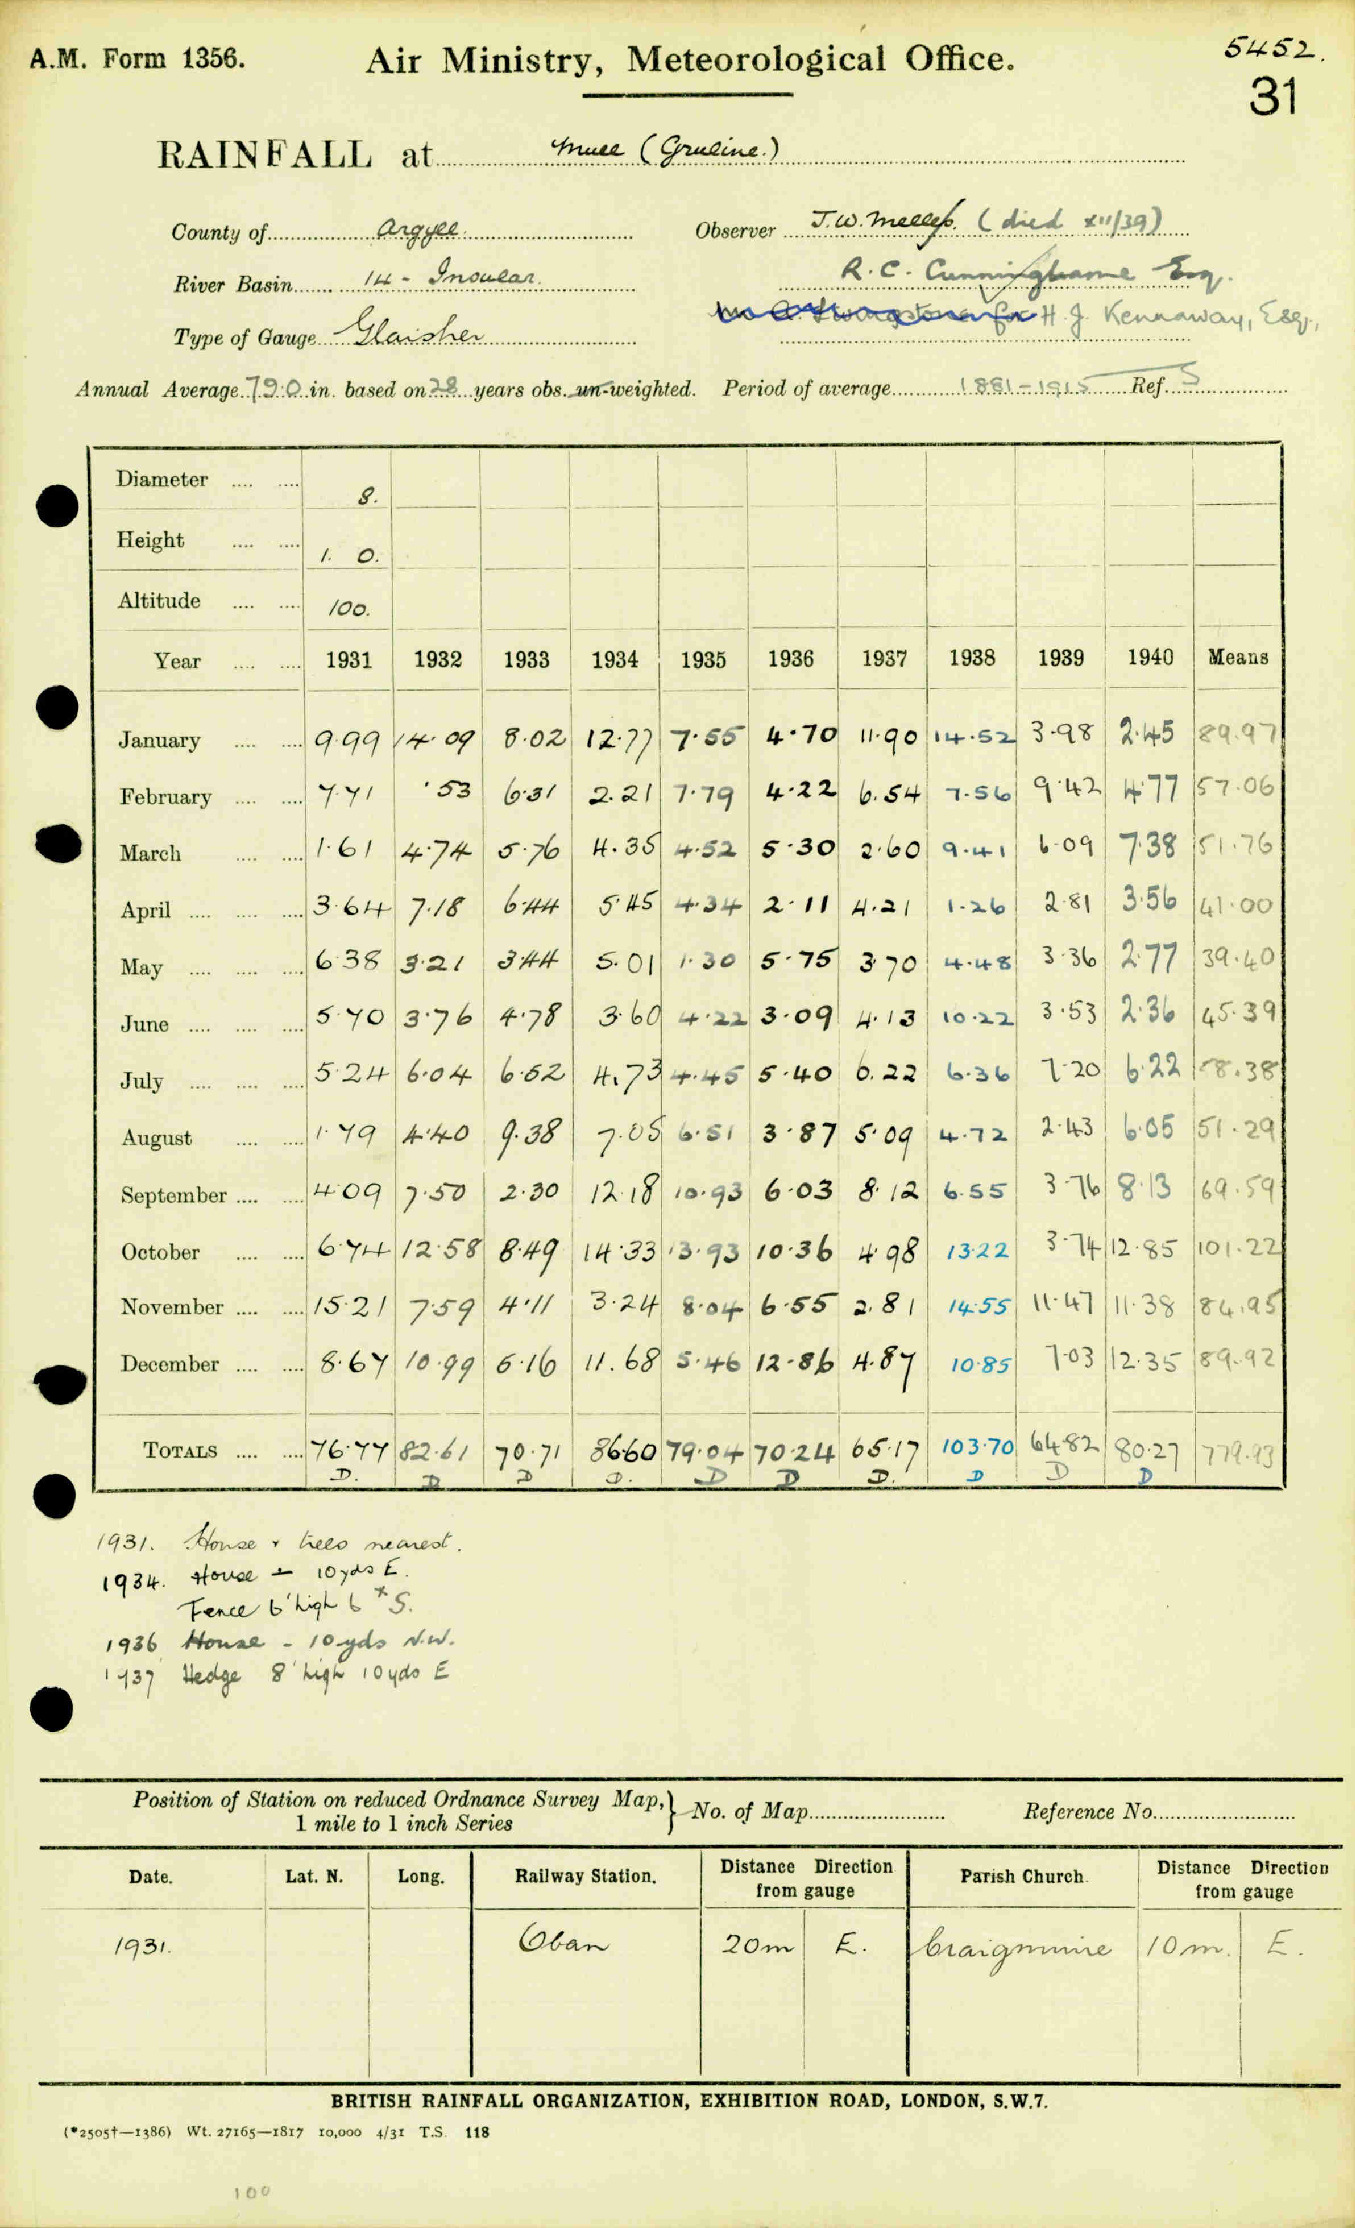 A.M. Form 1356.
Air Ministry, Meteorological Office.
5452.
31
RAINFALL at Mull (Gruline.)
County of Argyll. Observer J.W. Melles. (died XII/39)
River Basin 14 - Insular. R. C. Cunninghame Esq.
Type of Gauge Glaisher H. J. Kennaway, Esq.,
Annual Average 79.0 in. based on 28 years obs. un-weighted. Period of average 1881-1915 Ref. S
Diameter 8.
Height 1. 0.
Altitude 100.
Year 1931 1932 1933 1934 1935 1936 1937 1938 1939 1940 Means
January 9.99 14.09 8.02 12.77 7.55 4.70 11.90 14.52 3.98 2.45 89.97
February 7.71 .53 6.31 2.21 7.79 4.22 6.54 7.56 9.42 4.77 57.06
March 1.61 4.74 5.76 4.35 4.52 5.30 2.60 9.41 6.09 7.38 51.76
April 3.64 7.18 6.44 5.45 4.34 2.11 4.21 1.26 2.81 3.56 41.00
May 6.38 3.21 3.44 5.01 1.30 5.75 3.70 4.48 3.36 2.77 39.40
June 5.70 3.76 4.78 3.60 4.22 3.09 4.13 10.22 3.53 2.36 45.39
July 5.24 6.04 6.52 4.73 4.45 5.40 6.22 6.36 7.20 6.22 58.38
August 1.79 4.40 9.38 7.05 6.51 3.87 5.09 4.72 2.43 6.05 51.29
September 4.09 7.50 2.30 12.18 10.93 6.03 8.12 6.55 3.76 8.13 69.59
October 6.74 12.58 8.49 14.33 13.93 10.36 4.98 13.22 3.74 12.85 101.22
November 15.21 7.59 4.11 3.24 8.04 6.55 2.81 14.55 11.47 11.38 84.95
December 8.67 10.99 5.16 11.68 5.46 12.86 4.87 10.85 7.03 12.35 89.92
TOTALS 76.77 82.61 70.71 86.60 79.04 70.24 65.17 103.70 64.82 80.27 779.93
D. D D D. D D D. D D D
1931. House & trees nearest.
1934. House – 10yds E.
Fence 6' high 6 x S.
1936 House - 10 yds N.W.
1937 Hedge 8' high 10 yds E
Position of Station on reduced Ordnance Survey Map, 1 mile to 1 inch Series } No. of Map Reference No.
Date. Lat. N. Long. Railway Station. Distance Direction from gauge Parish Church. Distance Direction from gauge
1931. Oban 20m E. Craignuire 10 m. E.
BRITISH RAINFALL ORGANIZATION, EXHIBITION ROAD, LONDON, S.W.7.
(*2505†—1386) Wt. 27165—1817 10,000 4/31 T.S. 118
100